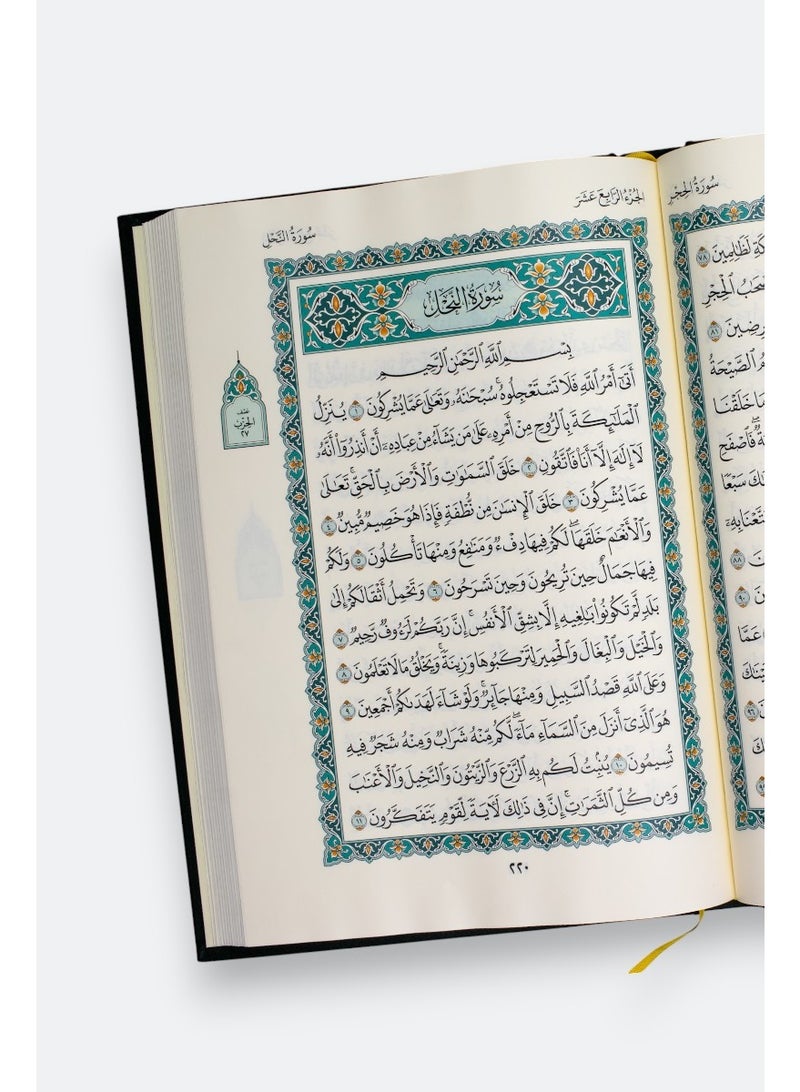 سُورَةُ الحِجْرِ
لَظَٰلِمِينَ ٧٨
ٱلْحِجْرِ
٨١
ٱلصَّيْحَةُ
خَلَقْنَا
فَٱصْفَحِ
سَبْعًا
٨٨
٩٠
عَمَّا
الجُزْءُ الرَّابِعَ عَشَرَ
سُورَةُ النَّحْلِ
سُورَةُ النَّحْلِ
بِسْمِ ٱللَّهِ ٱلرَّحْمَٰنِ ٱلرَّحِيمِ
أَتَىٰٓ أَمْرُ ٱللَّهِ فَلَا تَسْتَعْجِلُوهُ ۚ سُبْحَٰنَهُۥ وَتَعَٰلَىٰ عَمَّا يُشْرِكُونَ ١ يُنَزِّلُ
ٱلْمَلَٰٓئِكَةَ بِٱلرُّوحِ مِنْ أَمْرِهِۦ عَلَىٰ مَن يَشَآءُ مِنْ عِبَادِهِۦٓ أَنْ أَنذِرُوٓا۟ أَنَّهُۥ
لَآ إِلَٰهَ إِلَّآ أَنَا۠ فَٱتَّقُونِ ٢ خَلَقَ ٱلسَّمَٰوَٰتِ وَٱلْأَرْضَ بِٱلْحَقِّ ۚ تَعَٰلَىٰ
عَمَّا يُشْرِكُونَ ٣ خَلَقَ ٱلْإِنسَٰنَ مِن نُّطْفَةٍ فَإِذَا هُوَ خَصِيمٌ مُّبِينٌ ٤
وَٱلْأَنْعَٰمَ خَلَقَهَا ۗ لَكُمْ فِيهَا دِفْءٌ وَمَنَٰفِعُ وَمِنْهَا تَأْكُلُونَ ٥ وَلَكُمْ
فِيهَا جَمَالٌ حِينَ تُرِيحُونَ وَحِينَ تَسْرَحُونَ ٦ وَتَحْمِلُ أَثْقَالَكُمْ إِلَىٰ
بَلَدٍ لَّمْ تَكُونُوا۟ بَٰلِغِيهِ إِلَّا بِشِقِّ ٱلْأَنفُسِ ۚ إِنَّ رَبَّكُمْ لَرَءُوفٌ رَّحِيمٌ ٧
وَٱلْخَيْلَ وَٱلْبِغَالَ وَٱلْحَمِيرَ لِتَرْكَبُوهَا وَزِينَةً ۚ وَيَخْلُقُ مَا لَا تَعْلَمُونَ ٨
وَعَلَى ٱللَّهِ قَصْدُ ٱلسَّبِيلِ وَمِنْهَا جَآئِرٌ ۚ وَلَوْ شَآءَ لَهَدَىٰكُمْ أَجْمَعِينَ ٩
هُوَ ٱلَّذِىٓ أَنزَلَ مِنَ ٱلسَّمَآءِ مَآءً ۖ لَّكُم مِّنْهُ شَرَابٌ وَمِنْهُ شَجَرٌ فِيهِ
تُسِيمُونَ ١٠ يُنۢبِتُ لَكُم بِهِ ٱلزَّرْعَ وَٱلزَّيْتُونَ وَٱلنَّخِيلَ وَٱلْأَعْنَٰبَ
وَمِن كُلِّ ٱلثَّمَرَٰتِ ۗ إِنَّ فِى ذَٰلِكَ لَءَايَةً لِّقَوْمٍ يَتَفَكَّرُونَ ١١
نصف
الحزب
٢٧
٢٢٠